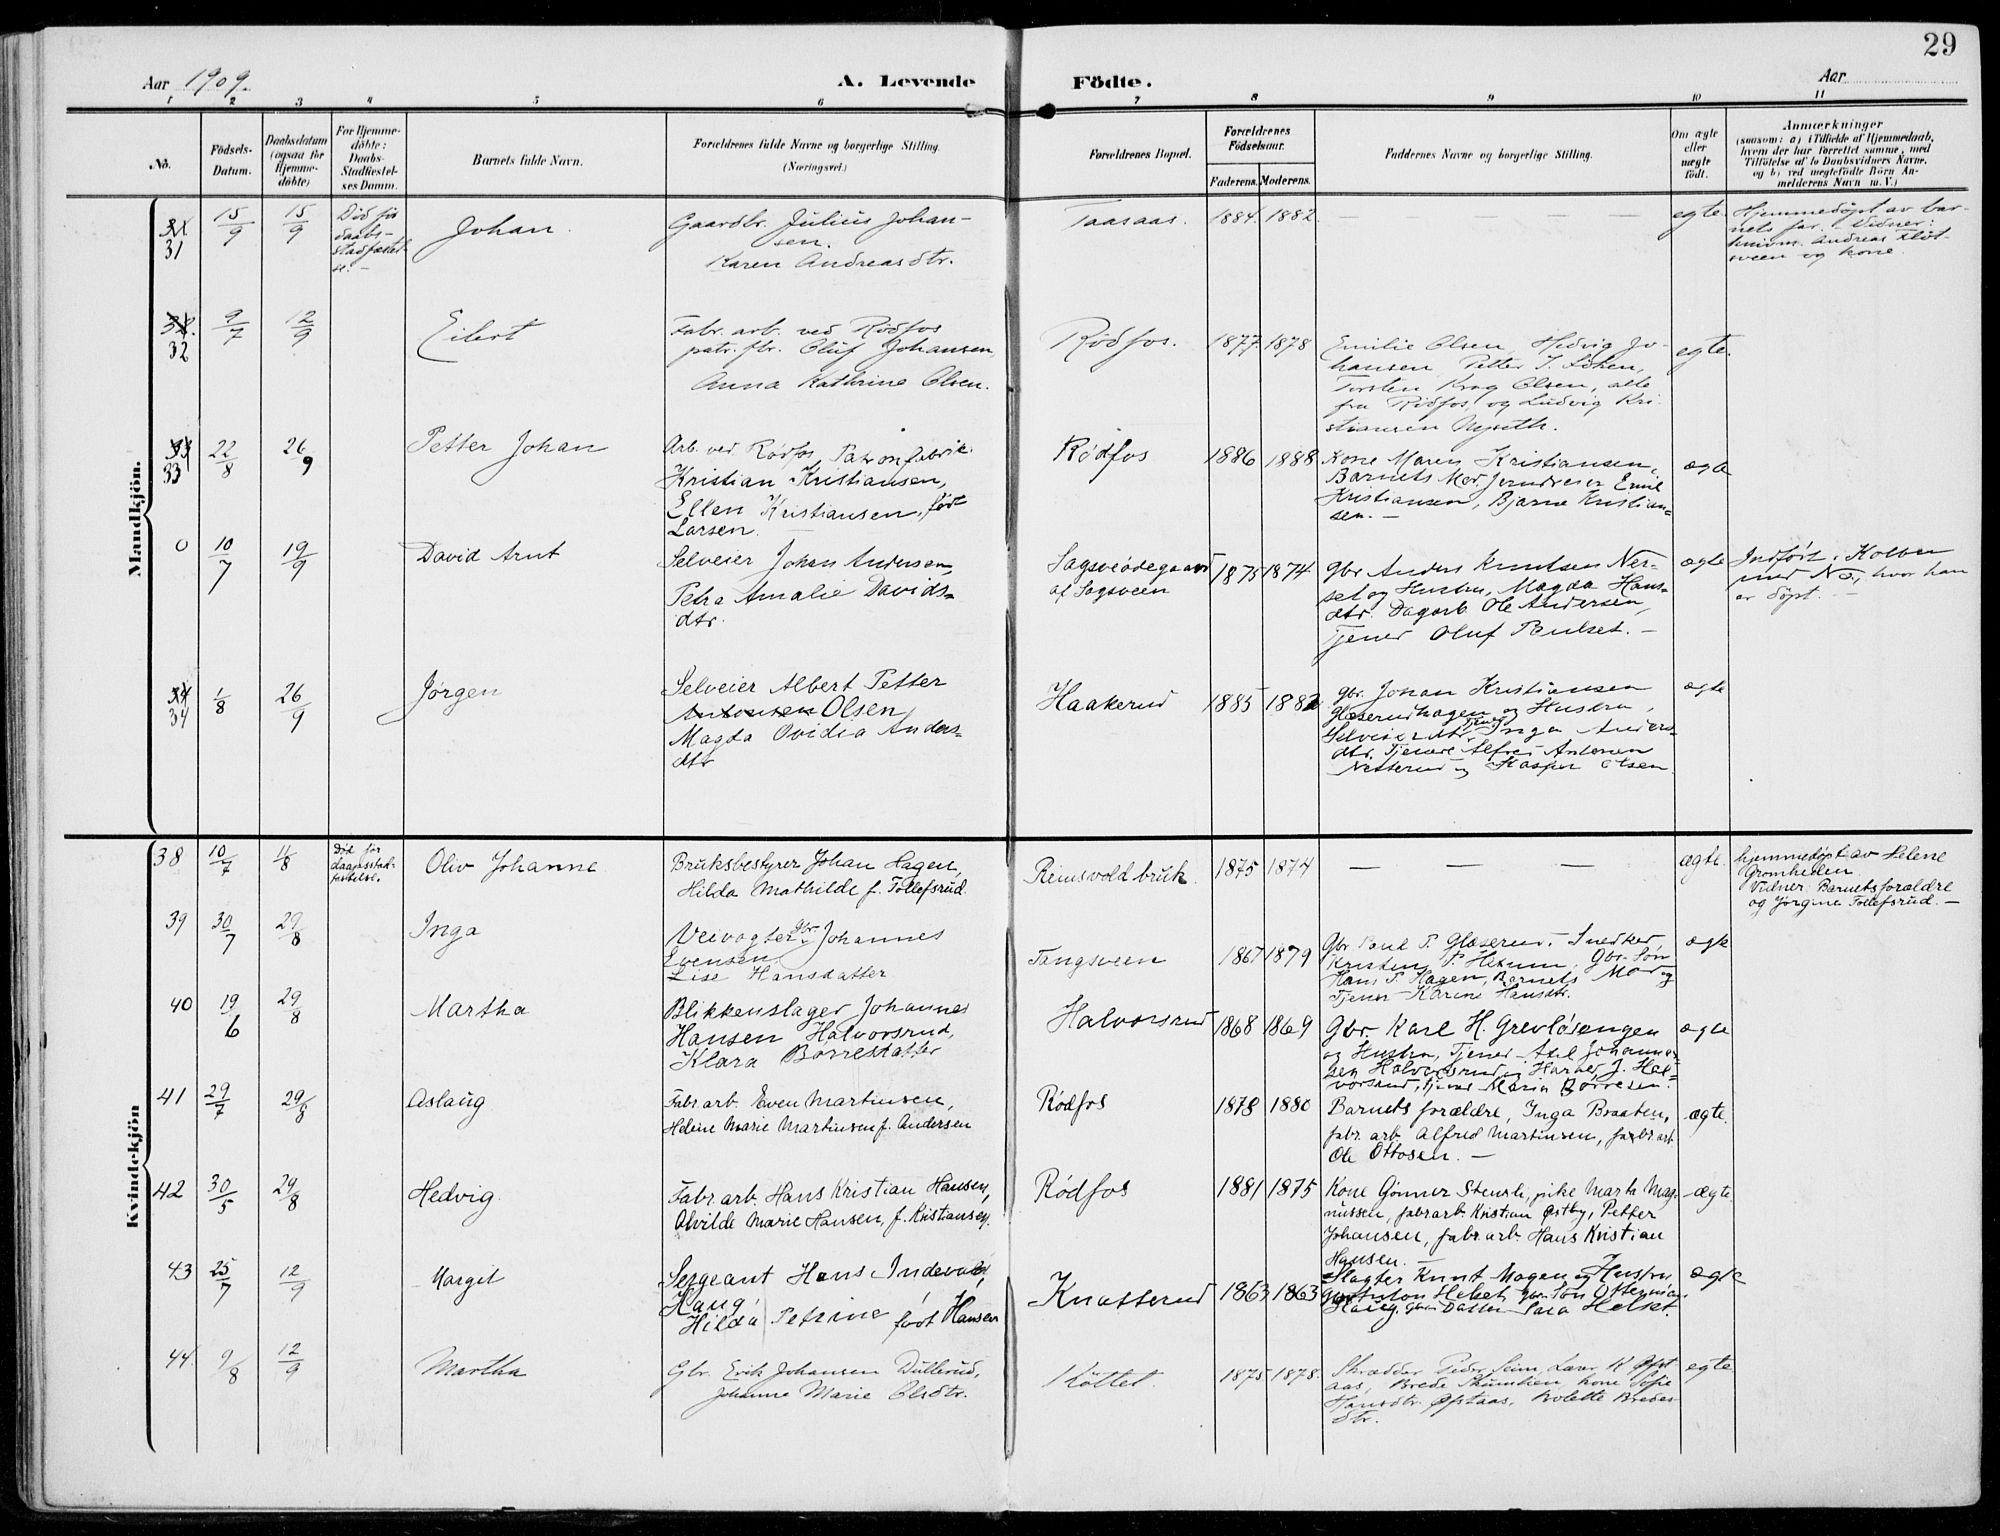 29
Aar 1909.
A. Levende Födte.
Aar
1 2 3 4 5 6 7 8 9 10 11
No.
Födsels-Datum.
Daabsdatum (ogsaa for Hjemme-döbte)
For Hjemme-döbte: Daabs-Stadfæstel-ses Datum.
Barnets fulde Navn.
Forældrenes fulde Navne og borgerlige Stilling.
(Næringsvei.)
Forældrenes Bopæl.
Forældrenes Födselsaar.
Faderens. Moderens.
Faddernes Navne og borgerlige Stilling.
Om ægte eller uægte födt.
Anmærkninger
(saasom: a) i Tilfælde af Hjemmedaab,
hvem der har forrettet samme, med
Tilföielse af to Daabsvidners Navne,
og b) ved uegtefödte Börn An-
melderens Navn m. V.)
Mandkjön.
31 15/9 15/9 Död før daabs-stadfæstel-se. — Johan. Gaardbr. Julius Johan-
sen.
Karen Andreasdtr.
Taasaas. 1884. 1882. — — — — egte. Hjemmedøpt av bar-
nets far. Vidner:
Andreas Fløt-
sveen og kone.
32 9/7 12/9 Eilert Fabr. arb. ved Rödfos
patr. fbr. Oluf Johansen,
Anna Kathrine Olsen.
Rödfos. 1877. 1878 Emilie Olsen, Hedvig Jo-
hansen Petter J.
Torsten Krag Olsen, alle
fra Rödfos, og Ludvig Kri-
stiansen
egte.
33 22/8 26/9 Petter Johan Arb. ved Rødfos Patronfabrik
Kristian Kristiansen,
Ellen Kristiansen, født
Larsen.
Rødfos 1886 1888 Kone Maren Kristiansen,
Barnets Mor, Emil
Kristiansen, Bjarne Kristian-
sen. —
ægte
0 10/7 19/9 David Arnt Selveier Johan Andersen,
Petra Amalie Davids-
dtr.
Sagsveødegaard
af Sagsveen
1875 1874 Gbr Anders Knudsen Ner-
set og Hustru, Magda Hans-
dtr. Dagarb. Ole Andersen,
Tjener Oluf Paulset. —
ægte Indført i Kolbu
med No., hvor han
er døpt. —
34 1/8 26/9 Jørgen Selveier Albert Petter
Antonsen Olsen,
Magda Ovidia Anders-
dtr
Haakerud 1885 1882 Gbr. Johan Kristiansen
Glæserudhagen og Hustru,
Selveier dtr. Tjener Inga Anders-
dtr. Tjenere Alfred Antonsen
Netterud og Kasper Olsen.
ægte
Kvindekjön
38 10/7 11/8 Död før daabsstad-fæstelse. Oliv Johanne Bruksbestyrer Johan Hagen,
Hilda Mathilde f. Tollefsrud
Reinsvold bruk. 1875 1874 — — — ægte. hjemmedøpt av Helene
Gromheden
Vidner: Barnets forældre
og Jørgine Tollefsrud. —
39 30/7 29/8 Inga Veivogter gbr. Johannes
Evensen
Lise Hansdatter
Tangsveen 1867 1879 Gbr Paul P. Glæserud. Snedker
Kristen P. Hexum, Gbr. Søn
Hans P. Hagen, Barnets Mor og
Tjener Karine Hansdtr.
ægte
40 19/6 29/8 Martha Blikkenslager Johannes
Hansen Halvorsrud,
Klara Borresdatter
Halvorsrud 1868 1869 Gbr Karl H. Grevløsengen
og Hustru, Tjener Axel Johannes-
sen Halvorsrud, Harald J. Hal-
vorsrud, tjener Maria Børresen.
ægte
41 29/7 29/8 Aslaug Fabr. arb. Even Martinsen,
Helene Marie Martinsen f. Andersen
Rödfos 1878 1880 Barnets forældre, Inga Braaten,
fabr. arb. Alfred Martinsen, fabr. arb.
Ole Ottosen. —
ægte.
42 30/5 29/8 Hedvig. Fabr arb. Hans Kristian Hansen,
Olvilde Marie Hansen, f. Kristiansen.
Rödfos 1881 1875 Kone Gunner Stensli, pike Marta Mag-
nussen, fabr arb Kristian Østby, Petter
Johansen, fabr. arb. Hans Kristian
Hansen. —
ægte
43 25/7 12/9 Margit Sergeant Hans Indevald
Haug,
Hilda Petrine født Hansen
Knatterud 1863 1863 Slagter Knut Mogen og Hustru
Gbr. Anton Helset, gbr. Søn
Haug, gbr. Datter Sara Helset.
ægte
44. 9/8 12/9 Martha Gbr. Erik Johansen Dullerud,
Johanne Marie Olsdtr.
Kölltet. 1875 1878. Skrædder Peder Seim, Lærer K. Øfst-
aas, Brede kone Sofie
Hansdtr. Øfstaas, Bolette Bredes-
dtr.
egte